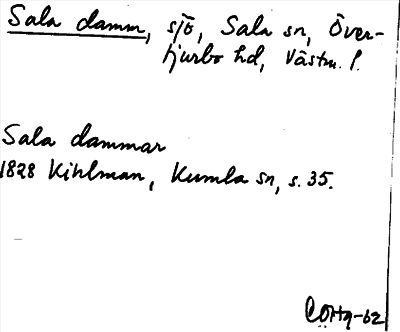 Sala damm, sjö, Sala sn, Över-
tjurbo hd, Västm. l.
Sala dammar
1828 Kihlman, Kumla sn, s. 35.